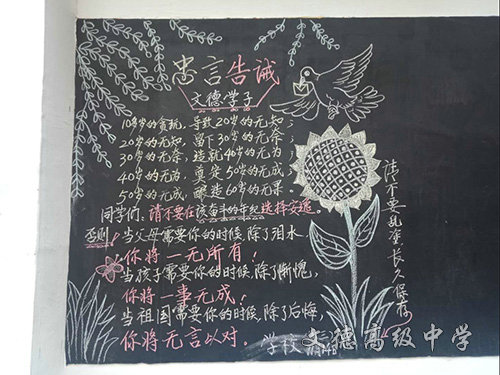 忠言告诫
文德学子
10多岁的贪玩，导致20岁的无知；
20岁的无知，留下30岁的无奈；
30岁的无奈，造就40岁的无为；
40岁的无为，奠定50岁的无成；
50岁的无成，酿造60岁的无果。
同学们，请不要在该奋斗的年纪选择安逸。
否则！当父母需要你的时候，除了泪水，
你将一无所有！
当孩子需要你的时候，除了惭愧，
你将一事无成！
当祖国需要你的时候，除了后悔，
你将无言以对。
学校
请不要乱涂，长久保存。
文德高级中学